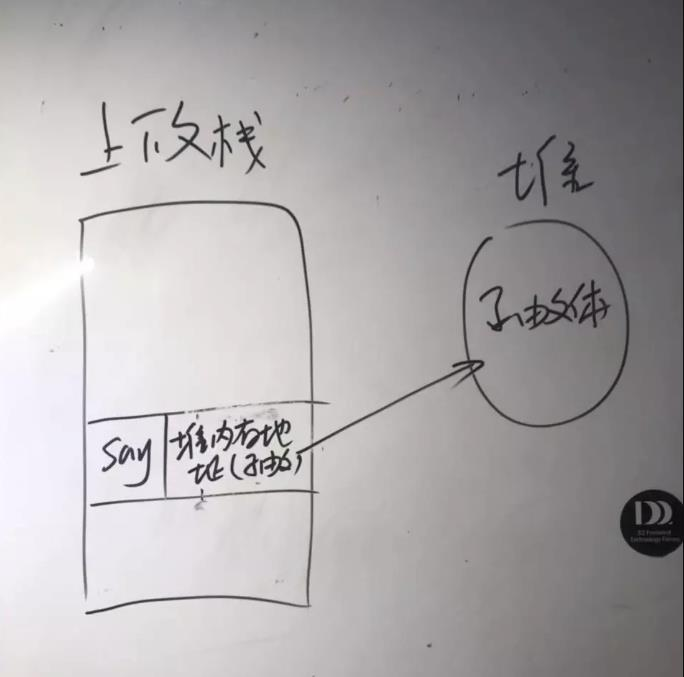 上下文栈
堆
函数体
say
堆内存地
址(函数)
D2 Frontend
Technology Forum